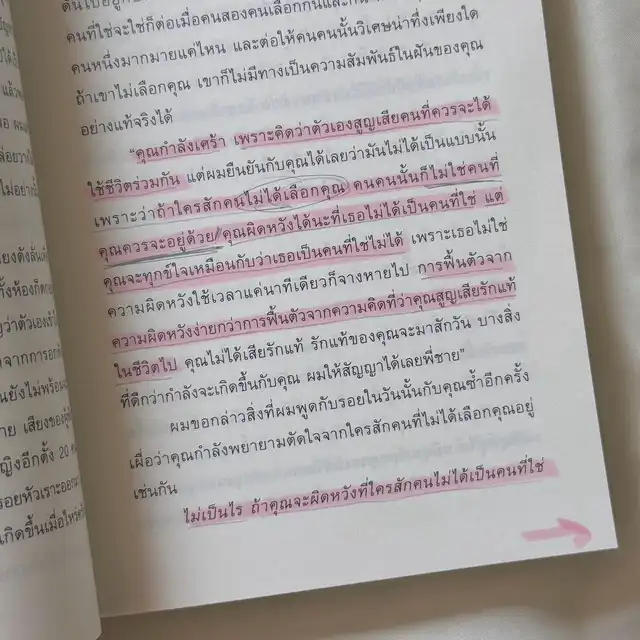 คนที่ใช่จะใช่ก็ต่อเมื่อคนสองคนเลือกกันและกัน
คนหนึ่งมากมายแค่ไหน และต่อให้คนคนนั้นวิเศษน่าทึ่งเพียงใด
ถ้าเขาไม่เลือกคุณ เขาก็ไม่มีทางเป็นความสัมพันธ์ในฝันของคุณ
อย่างแท้จริงได้
“คุณกำลังเศร้า เพราะคิดว่าตัวเองสูญเสียคนที่ควรจะได้
ใช้ชีวิตร่วมกัน แต่ผมยืนยันกับคุณได้เลยว่ามันไม่ได้เป็นแบบนั้น
เพราะว่าถ้าใครสักคนไม่ได้เลือกคุณ คนคนนั้นก็ไม่ใช่คนที่
คุณควรจะอยู่ด้วย คุณผิดหวังได้นะที่เธอไม่ได้เป็นคนที่ใช่ แต่
คุณจะทุกข์ใจเหมือนกับว่าเธอเป็นคนที่ใช่ไม่ได้ เพราะเธอไม่ใช่
ความผิดหวังใช้เวลาแค่นาทีเดียวก็จางหายไป การฟื้นตัวจาก
ความผิดหวังง่ายกว่าการฟื้นตัวจากความคิดที่ว่าคุณสูญเสียรักแท้
ในชีวิตไป คุณไม่ได้เสียรักแท้ รักแท้ของคุณจะมาสักวัน บางสิ่ง
ที่ดีกว่ากำลังจะเกิดขึ้นกับคุณ ผมให้สัญญาได้เลยพี่ชาย”
ผมขอกล่าวสิ่งที่ผมพูดกับรอยในวันนั้นกับคุณซ้ำอีกครั้ง
เผื่อว่าคุณกำลังพยายามตัดใจจากใครสักคนที่ไม่ได้เลือกคุณอยู่
เช่นกัน
ไม่เป็นไร ถ้าคุณจะผิดหวังที่ใครสักคนไม่ได้เป็นคนที่ใช่